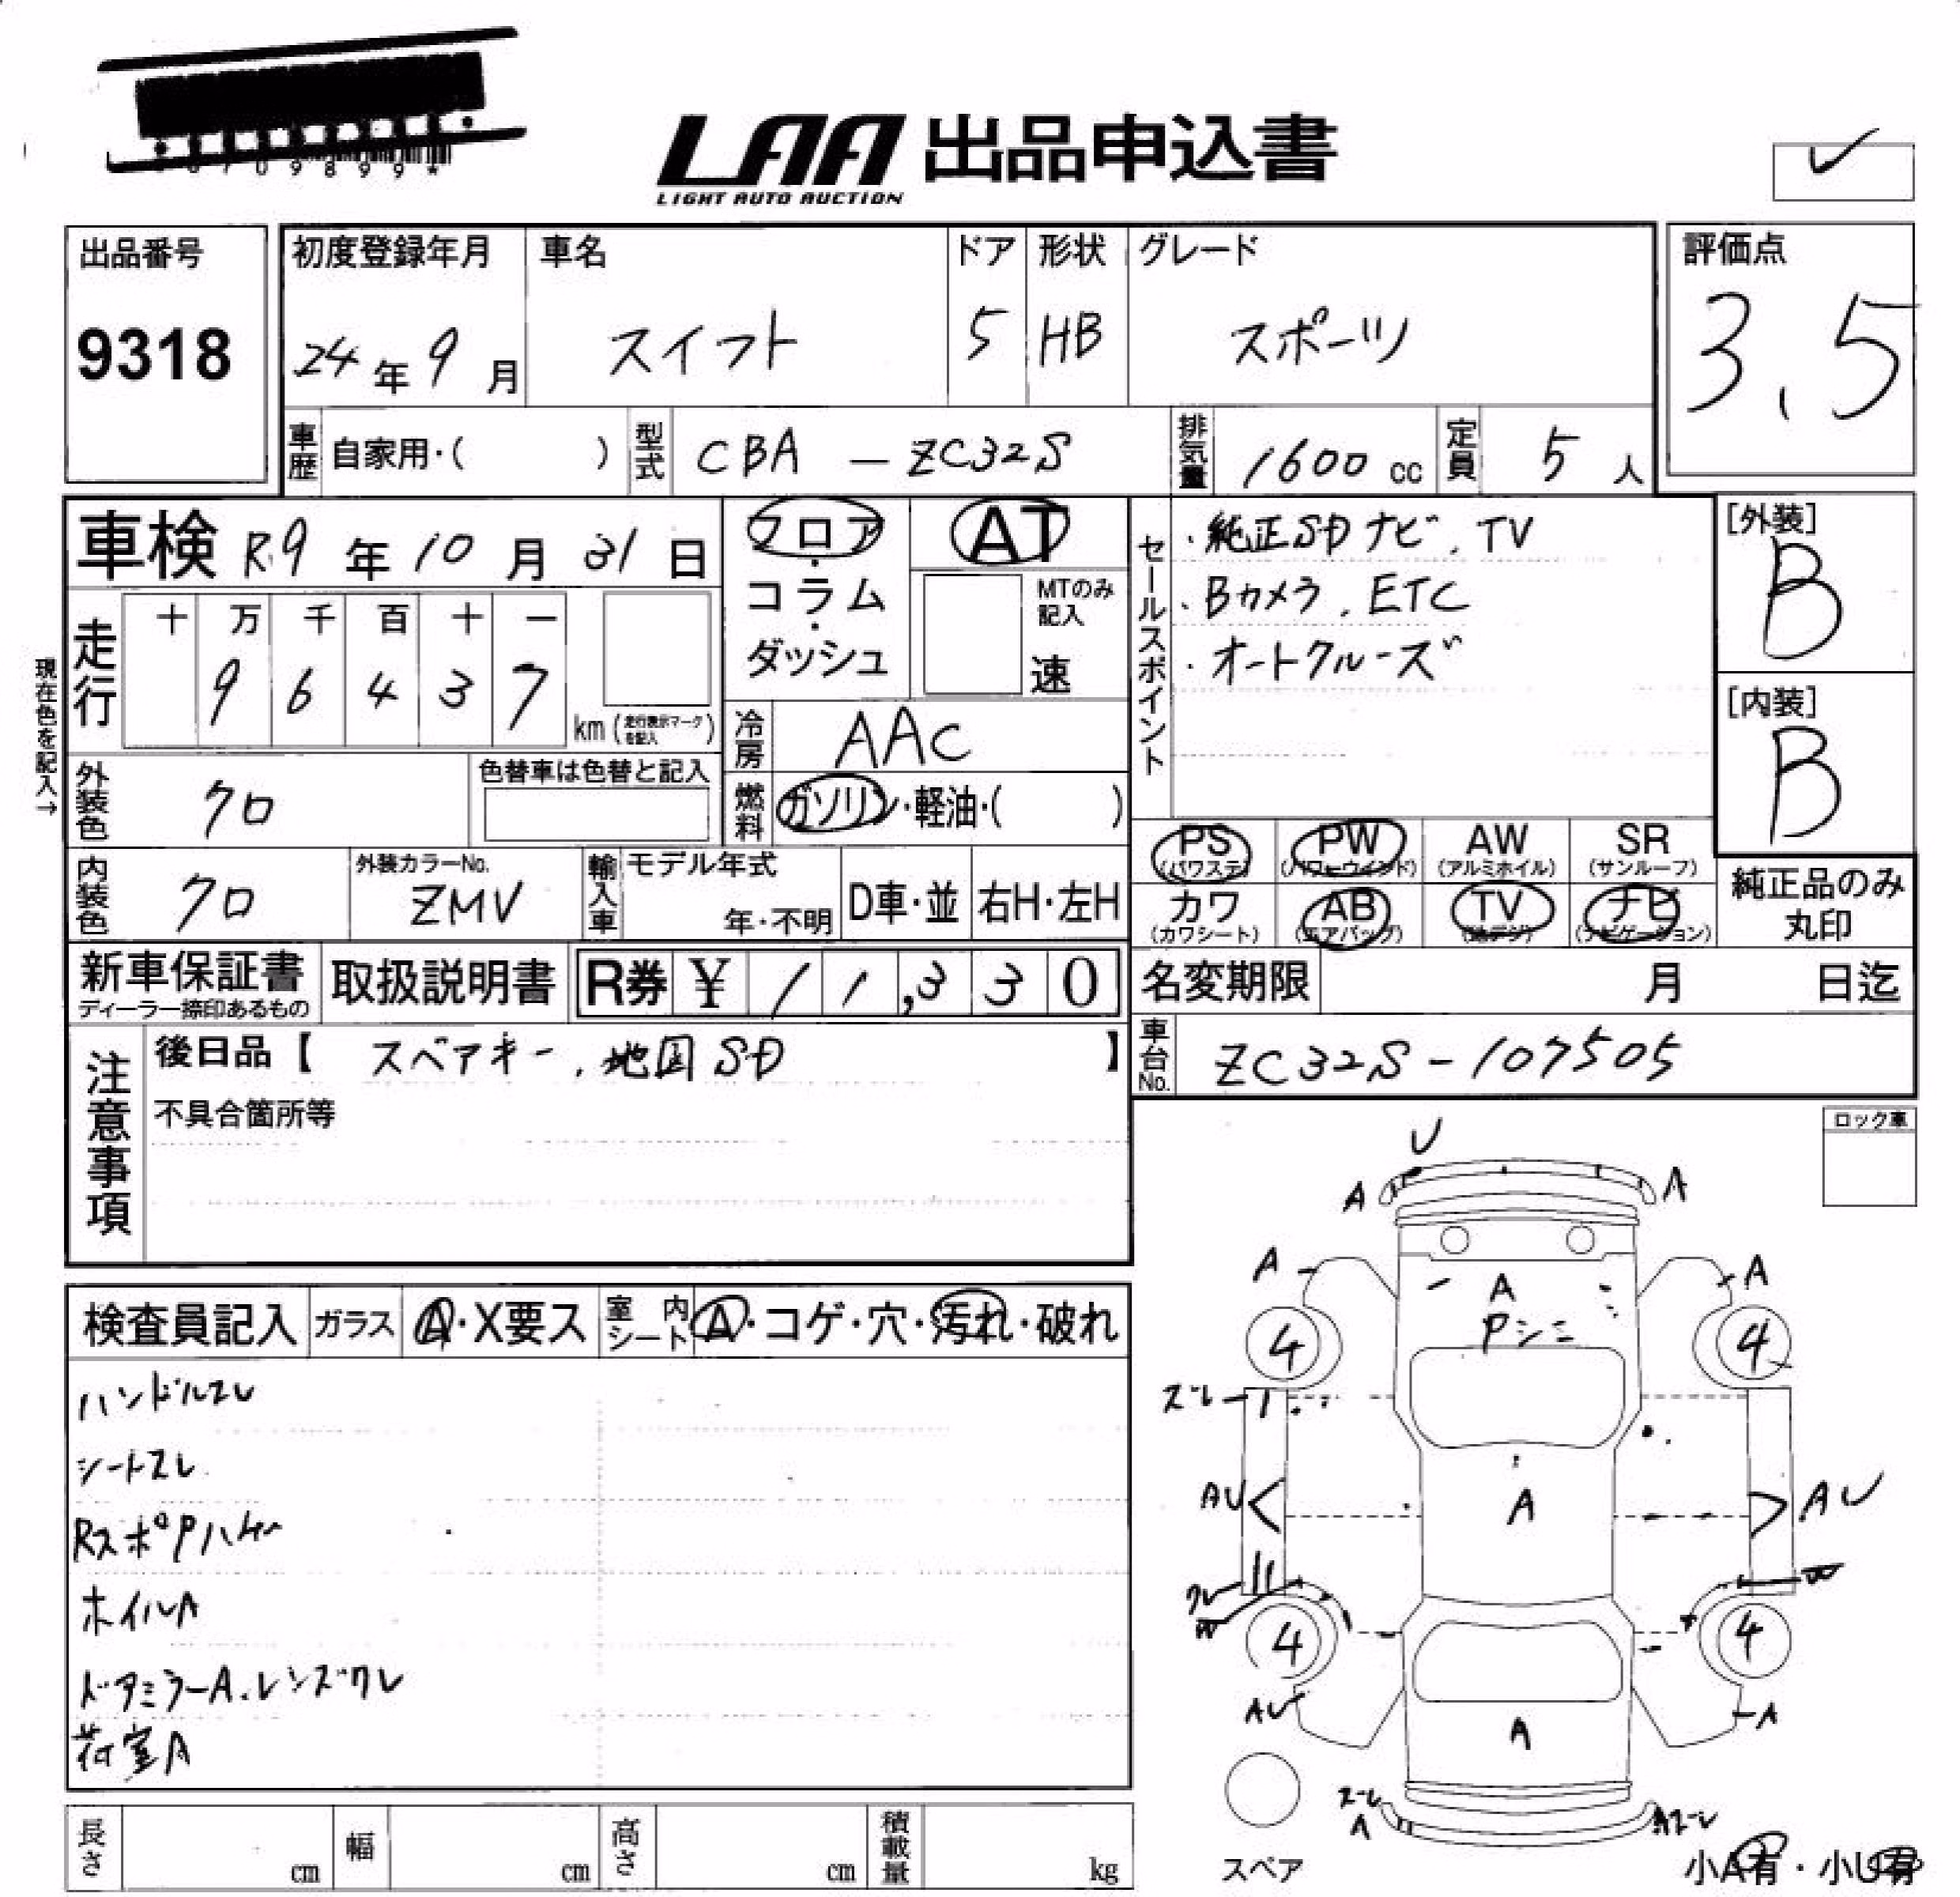 709899*
LAA 出品申込書
LIGHT AUTO AUCTION
出品番号
9318
初度登録年月
24年9月
車名
スイフト
ドア
5
形状
HB
グレード
スポーツ
評価点
3.5
車歴 自家用・( )
型式 CBA - ZC32S
排気量 1600cc
定員 5人
車検 R9年10月31日
フロア・コラム・ダッシュ
AT
MTのみ記入
速
セールスポイント
・純正SDナビ.TV
・Bカメラ.ETC
・オートクルーズ
[外装]
B
[内装]
B
現在色を記入→
走行
十 万 千 百 十 一
9 6 4 3 7
km(走行表示マークを記入)
冷房 AAC
外装色 クロ
色替車は色替と記入
燃料 ガソリン・軽油・( )
内装色 クロ
外装カラーNo.
ZMV
輸入車 モデル年式
年・不明
D車・並
右H・左H
PS (パワステ)
PW (パワーウインド)
AW (アルミホイル)
SR (サンルーフ)
カワ (カワシート)
AB (エアバッグ)
TV (地デジ)
ナビ (ナビゲーション)
純正品のみ丸印
新車保証書
ディーラー捺印あるもの
取扱説明書
R券 ¥11,330
名変期限 月 日迄
注意事項
後日品【 スペアキー.地図SD 】
不具合箇所等
車台No. ZC32S-107505
ロック車
検査員記入
ガラス A・X要ス
室内シート A・コゲ・穴・汚れ・破れ
ハンドルスレ
シートスレ
RスポPハゲ
ホイルA
ドアミラーA.レンズワレ
荷室A
U
A A
A A
A
Pシミ
4 4
ズレ
AU A AU
ワレ
W W
4 4
AU A
A
ズレ
A
Aズレ
スペア
小A有・小U有
長さ cm
幅 cm
高さ cm
積載量 kg